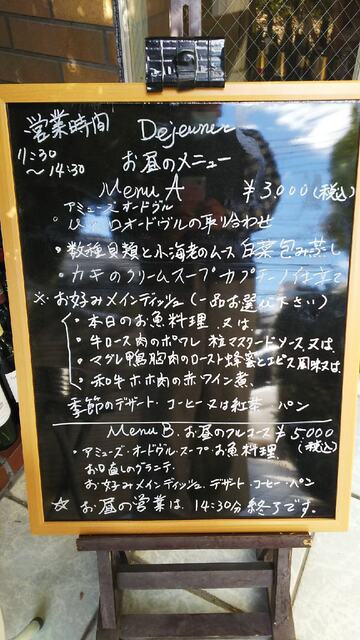 営業時間
11:30
～14:30
Dejeuner
お昼のメニュー
Menu A ¥3,000(税込)
アミューズ・オードヴル
オードヴルの取り合わせ
・数種貝類と小海老のムース 白菜包み蒸し
・カキのクリームスープ カプチーノ仕立て
※お好みメインディッシュ(一品お選び下さい)
・本日のお魚料理 又は、
・牛ロース肉のポワレ 粒マスタードソース又は、
・マグレ鴨胸肉のロースト 蜂蜜とエピス風味又は
・和牛ホホ肉の赤ワイン煮
季節のデザート・コーヒー又は紅茶 パン
Menu B. お昼のフルコース ¥5,000
(税込)
・アミューズ・オードヴル・スープ・お魚料理
お口直しのグラニテ
お好みメインディッシュ デザート・コーヒー・パン
☆ お昼の営業は、14:30分 終了です。